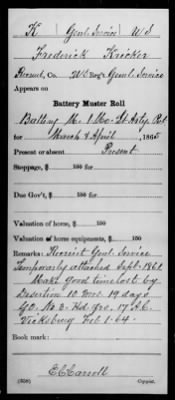 K | Genl. Service | U.S.
Frederick Kricker
Recruit, Co. , U.S. Reg't Genl. Service
Appears on
Battery Muster Roll
of Battery M. 1 Mo. Lt. Arty.
for March & April, 1865
Present or absent Present
Stoppage, $ 100 for
Due Gov't, $ 100 for
Valuation of horse, $ 100
Valuation of horse equipments, $ 100
Remarks: Recruit Genl. Service
Temporarily attached Sept. 1861
Make Good time lost by
Desertion 10 mo. 19 days
G.O. No 3 Hd. qrs. 17 A.C.
Vicksburg Feb 1-64
Book mark:
E C Carroll
(358) Copyist.